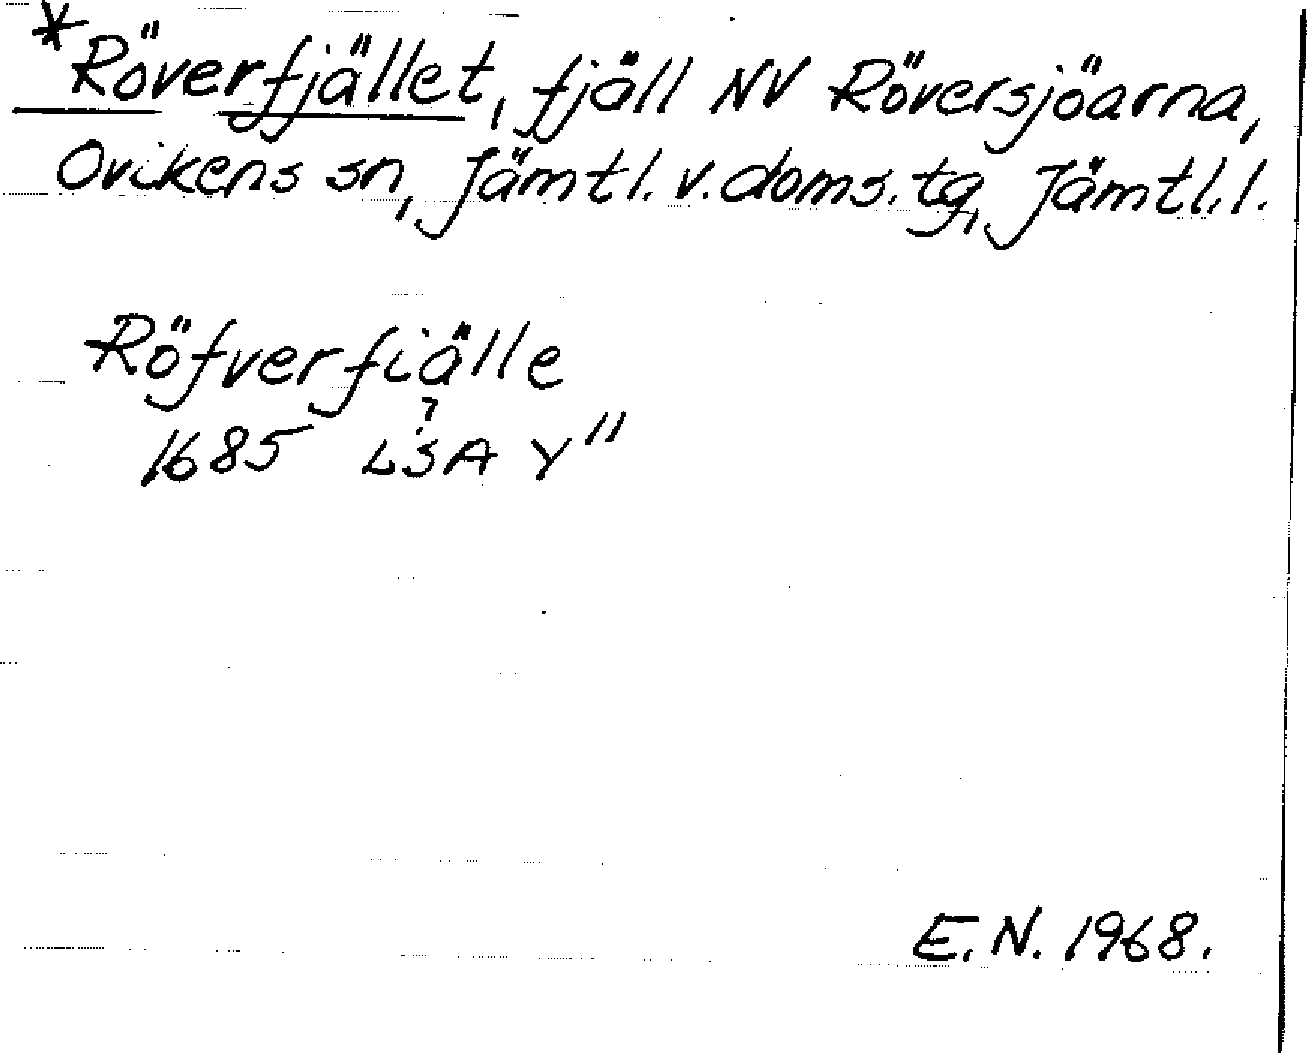 *Röverfjället, fjäll NV Röversjöarna,
Ovikens sn, Jämtl. v. doms. tg, Jämtl. l.
Röfverfiälle
?
1685 LSA Y"
E. N. 1968.